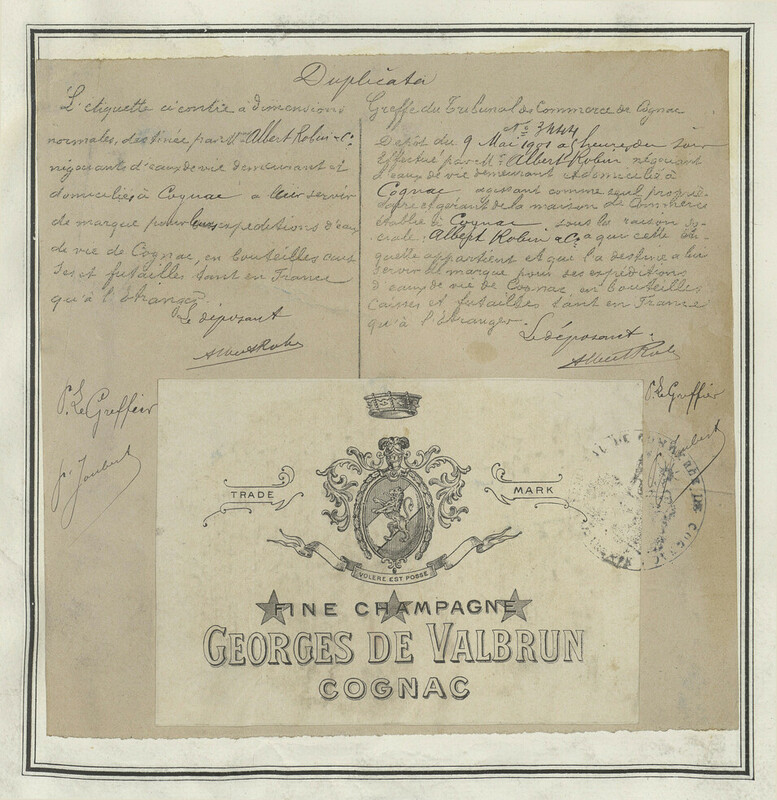 Duplicata
L'étiquette ci contre à dimensions
normales, destinée par Mr. Albert Robin & Co.
négociants d'eaux de vie demeurant et
domiciliés à Cognac a leur servir
de marque pour leurs expéditions d'eaux
de vie de Cognac, en bouteilles cais
ses et futailles tant en France
qu'à l'Étranger.
Le déposant
Albert Robin
P. Le Greffier
p. Joubert
Greffe du Tribunal de Commerce de Cognac
No. 3444
Dépôt du 9 Mai 1901 à heures du soir
effectué par Mr. Albert Robin négociant
d'eaux de vie demeurant et domicilié à
Cognac agissant comme seul proprié-
taire et gérant de la maison de Commerce
établie à Cognac sous la raison so-
ciale: Albert Robin & Co. a qui cette éti-
quette appartient et que l'a destine a lui
servir de marque pour ses expéditions
d'eaux de vie de Cognac en bouteilles
caisses et futailles tant en France
qu'à l'Étranger.
Le déposant.
Albert Robin
P. Le Greffier
Joubert
TRADE MARK
VOLERE EST POSSE
FINE CHAMPAGNE
GEORGES DE VALBRUN
COGNAC
DE COMMERCE DE COGNAC